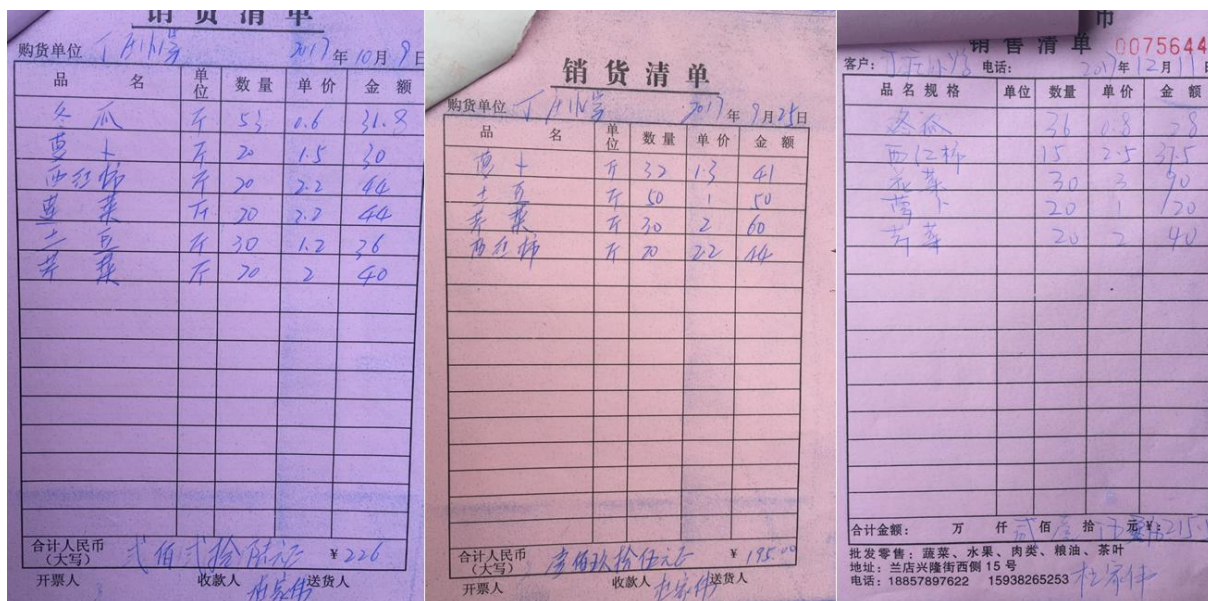 销货清单
购货单位 丁店小学 2017年10月9日
品名 单位 数量 单价 金额
冬瓜 斤 53 0.6 31.8
萝卜 斤 20 1.5 30
西红柿 斤 20 2.2 44
莲菜 斤 20 2.2 44
土豆 斤 30 1.2 36
芹菜 斤 20 2 40
合计人民币(大写) 弍佰弍拾陆元 ¥226
开票人 收款人 杜家伟 送货人
销货清单
购货单位 丁店小学 2017年9月25日
品名 单位 数量 单价 金额
萝卜 斤 32 1.3 41
土豆 斤 50 1 50
芹菜 斤 30 2 60
西红柿 斤 20 2.2 44
合计人民币(大写) 壹佰玖拾伍元 ¥195.00
开票人 收款人 杜家伟 送货人
市
销售清单 0075644
客户: 丁店小学 电话: 2017年12月11日
品名规格 单位 数量 单价 金额
冬瓜 36 0.8 28
西红柿 15 2.5 37.5
花菜 30 3 90
萝卜 20 1 20
芹菜 20 2 40
合计金额: 万 仟 弍佰 拾 元 ¥: 215
批发零售:蔬菜、水果、肉类、粮油、茶叶
地址:兰店兴隆街西侧15号
电话:18857897622 15938265253 杜家伟